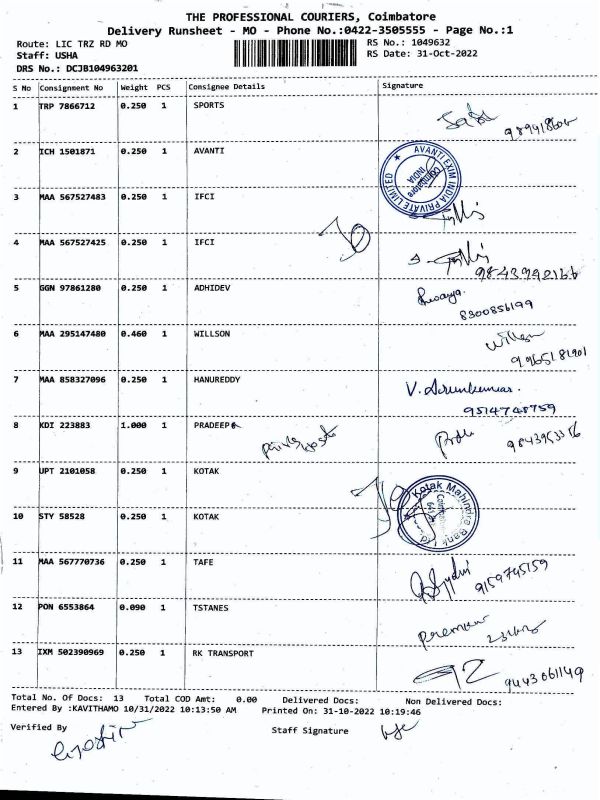 THE PROFESSIONAL COURIERS, Coimbatore
Delivery Runsheet - MO - Phone No.:0422-3505555 - Page No.:1
Route: LIC TRZ RD MO RS No.: 1049632
Staff: USHA RS Date: 31-Oct-2022
DRS No.: DCJB104963201
S No Consignment No Weight PCS Consignee Details Signature
1 TRP 7866712 0.250 1 SPORTS
2 ICH 1501871 0.250 1 AVANTI
AVANTI EXIM INDIA PRIVATE LIMITED
Coimbatore
INDIA
3 MAA 567527483 0.250 1 IFCI
4 MAA 567527425 0.250 1 IFCI
9843990266
5 GGN 97861280 0.250 1 ADHIDEV
8300856199
6 MAA 295147480 0.460 1 WILLSON
9965181901
7 MAA 858327096 0.250 1 HANUREDDY
V. Arunkumar.
9514748759
8 KDI 223883 1.000 1 PRADEEP
9 UPT 2101058 0.250 1 KOTAK
Kotak Mahindra Bank Ltd
10 STY 58528 0.250 1 KOTAK
11 MAA 567770736 0.250 1 TAFE
9159745159
12 PON 6553864 0.090 1 TSTANES
13 IXM 502390969 0.250 1 RK TRANSPORT
9443661149
Total No. Of Docs: 13 Total COD Amt: 0.00 Delivered Docs: Non Delivered Docs:
Entered By :KAVITHAMO 10/31/2022 10:13:50 AM Printed On: 31-10-2022 10:19:46
Verified By Staff Signature